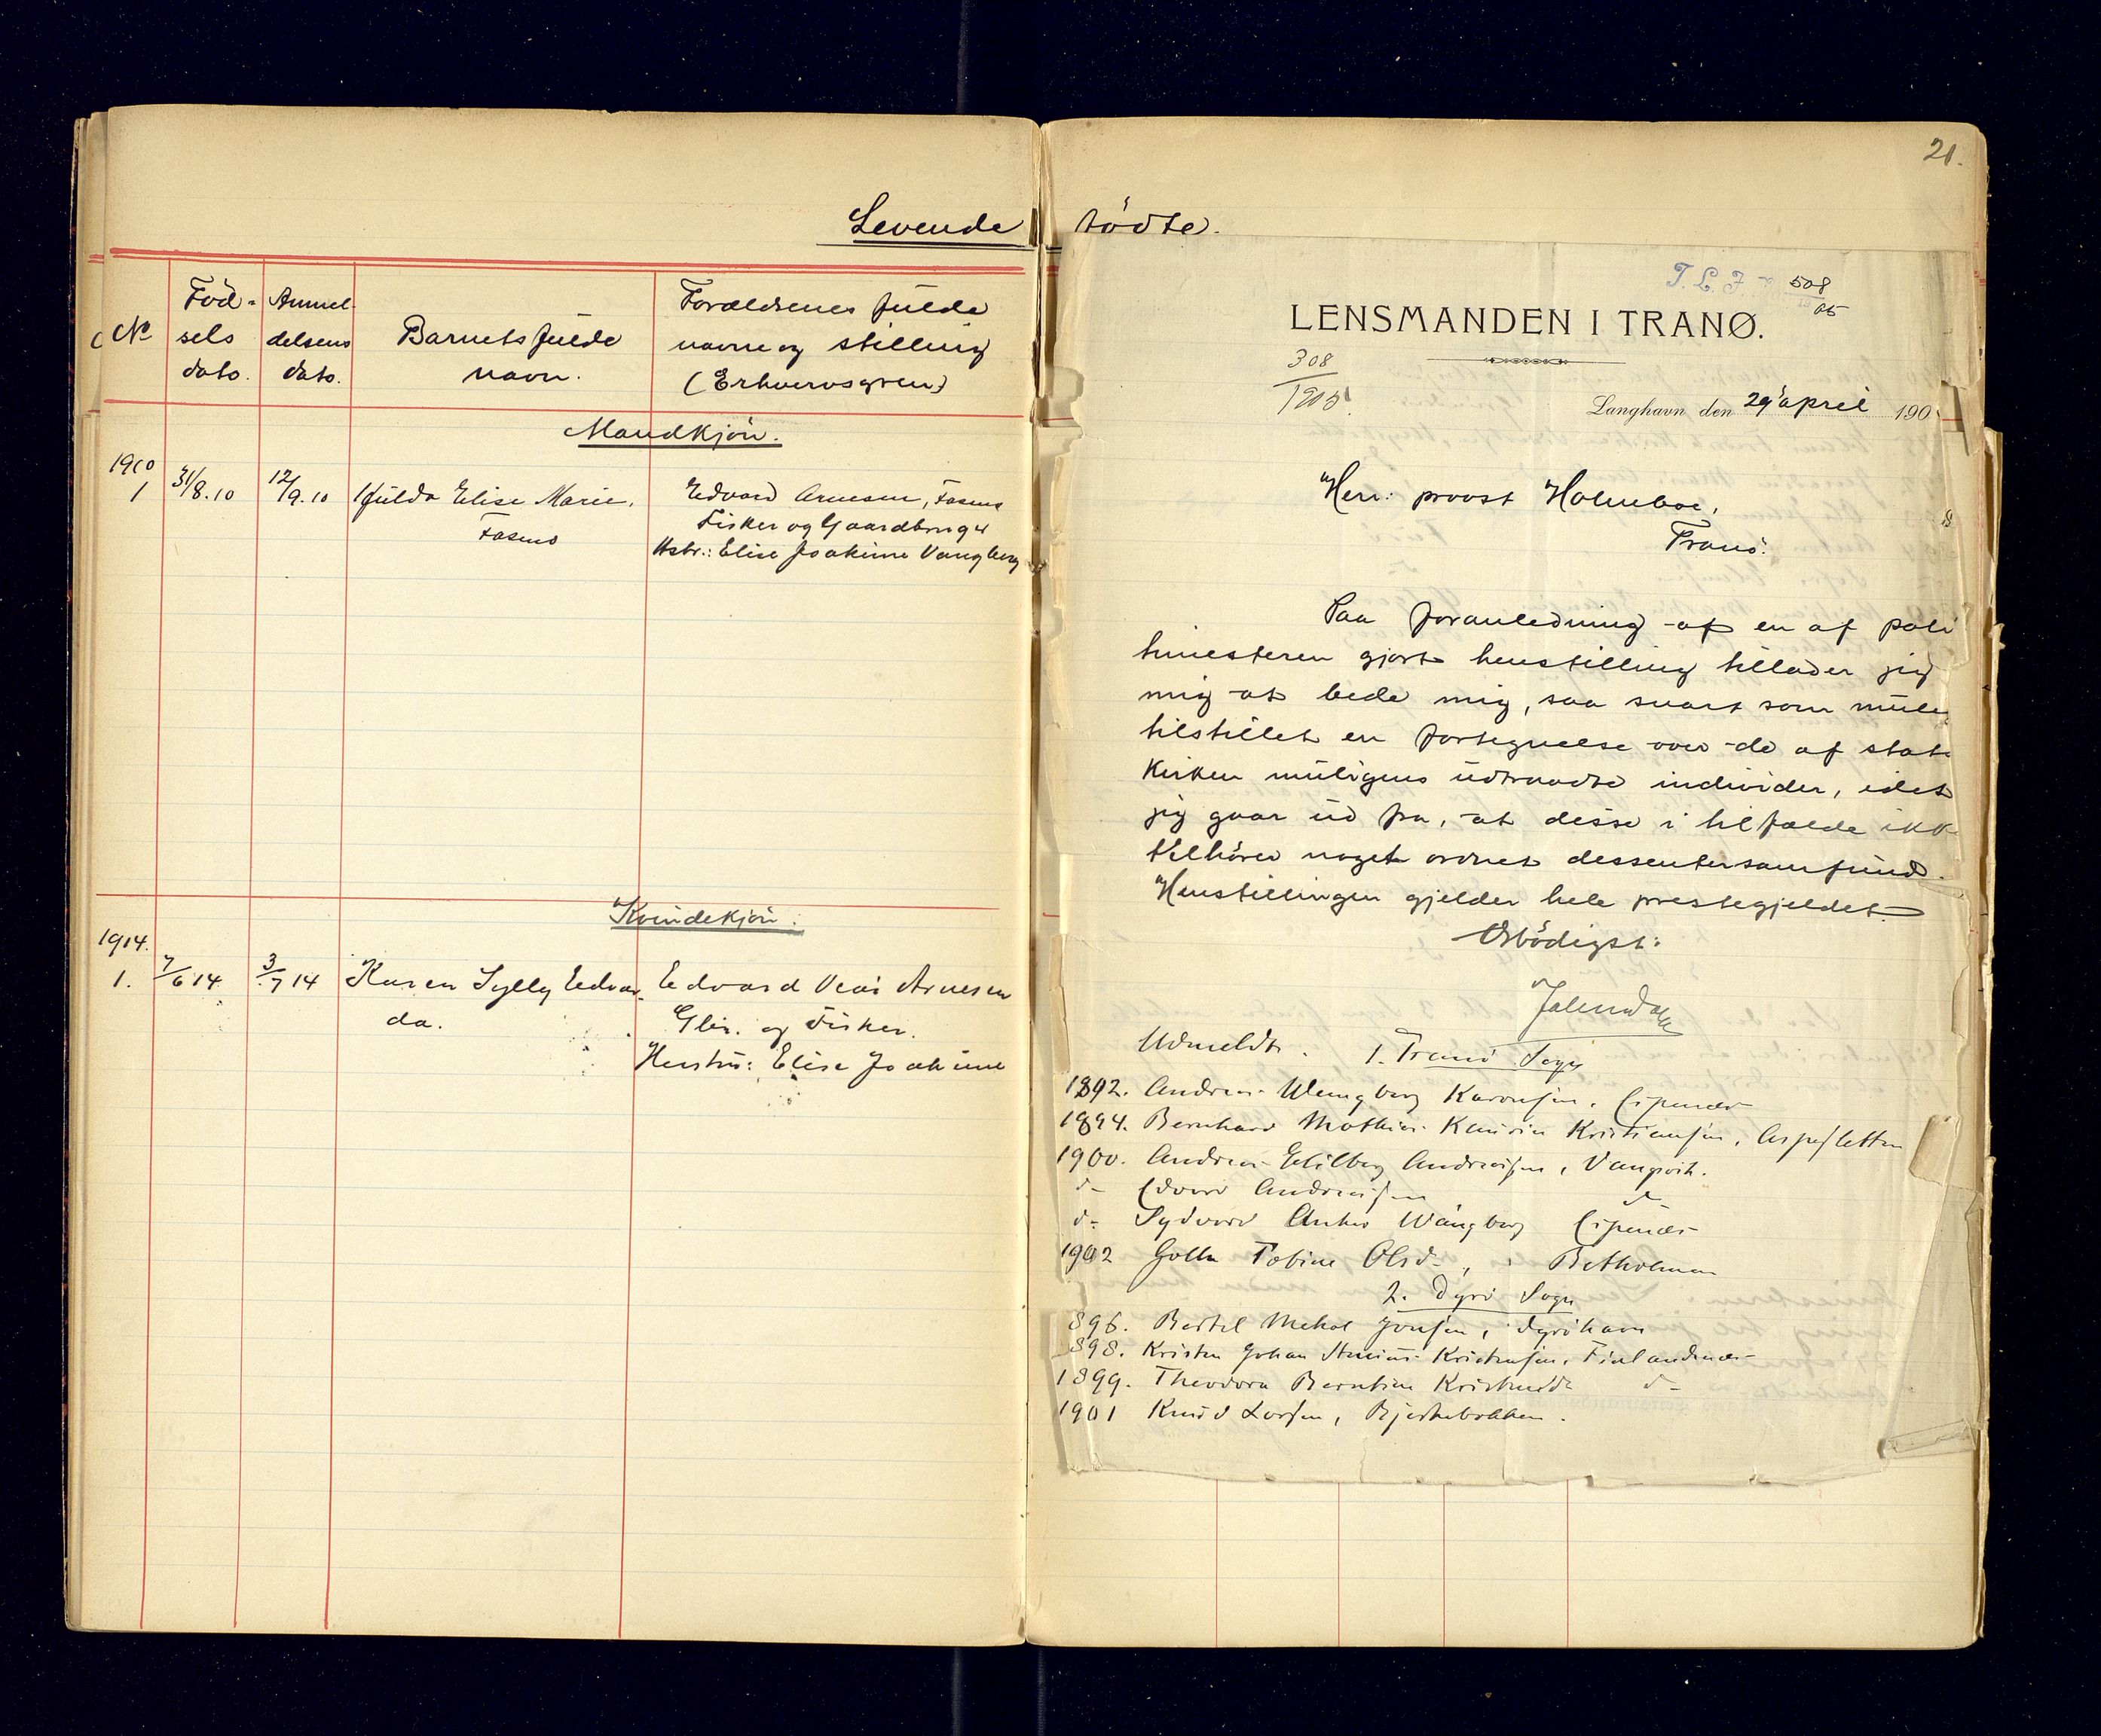 Levende
Nº
Föd-
sels
dato.
Anmel-
delsens
dato.
Barnets fulde
navn.
Forældrenes fulde
navne og stilling
(Erhvervsgren)
Mandkjön.
1910
1 31/8.10 12/9.10 Hulda Elise Marie. Edvard Arnesen, Fasmo
Fasmo Fisker og Gaardbruger
Hstr.: Elise Joakime Vangberg
Kvindekjön.
1914.
1. 7/6 14 3/7 14 Karen Sylly Edvar- Edvard Arnesen
da. Gbr. og Fisker.
Hustru: Elise Joakime
21.
födte.
T. L. J. 508
05
LENSMANDEN I TRANØ.
308
1905.
Langhavn den 29' april 190
Herr. provst Holmboe,
Tranö.
Paa foranledning af en af poli
timesteren gjort henstilling tillader jeg
mig at bede mig, saa snart som mulig
tilstillet en fortegnelse over de af stats
kirken muligens udtraadte individer, idet
jeg gaar ud fra, at disse i tilfælde ikke
tilhörer noget ordnet dissentersamfund.
Henstillingen gjelder hele prestegjeldet.
Ærbödigst:
Udmeldte. 1. Tranö Sogn
1892. Andreas Wangberg
1894. Bernhard Mathias Kaurin Kristiansen,
1900. Andreas Andreassen, Vangsvik.
d- Edvard Andreassen d-
d- Sydvard Wangberg
1902 Tobine Olsd.,
2. Dyrö Sogn
896. Bertel Mekal Jonsen, Dyröhavn
898. Kristen Johan Kristensen,
1899. Theodora Berntine Kristensd. d-
1901 Knud Larsen, Bjerkebakken.